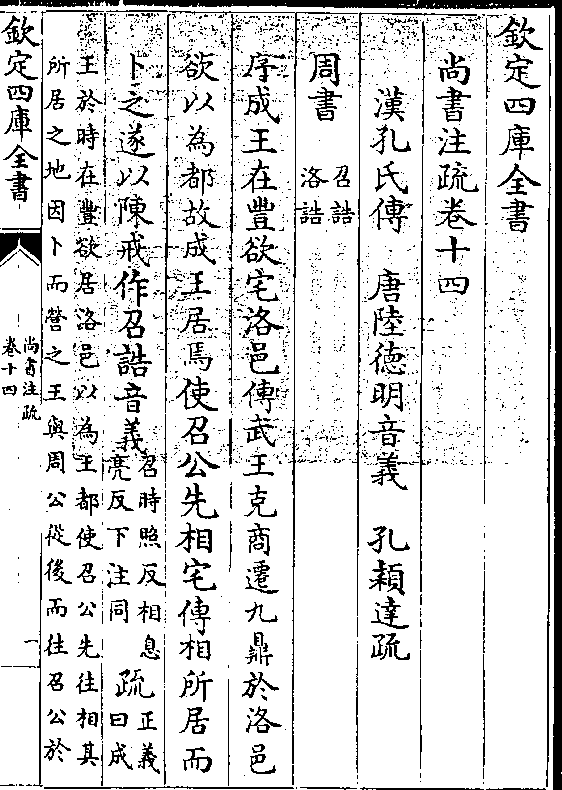 欽定四庫全書
尚書注疏卷十四
漢孔氏傳　唐陸德明音義　孔穎達疏
周書
召誥
洛誥
序成王在豐欲宅洛邑傳武王克商遷九鼎於洛邑
欲以為都故成王居焉使召公先相宅傳相所居而
卜之遂以陳戒作召誥音義
召時照反相息
亮反下注同
疏
正義
曰成
王於時在豐欲居洛邑以為王都使召公先往相其
所居之地因卜而營之王與周公從後而往召公於
欽定四庫全書
尚書注疏
卷十四
一